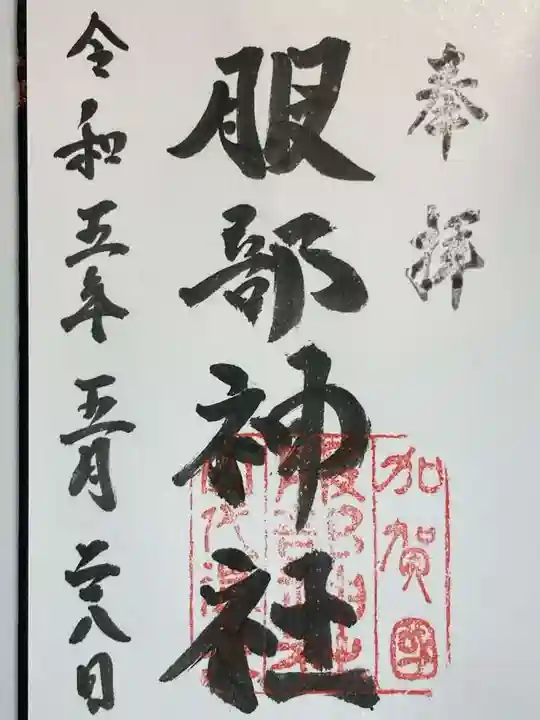 奉拝
加賀國
服部神社
服部神社
令和五年五月二十八日